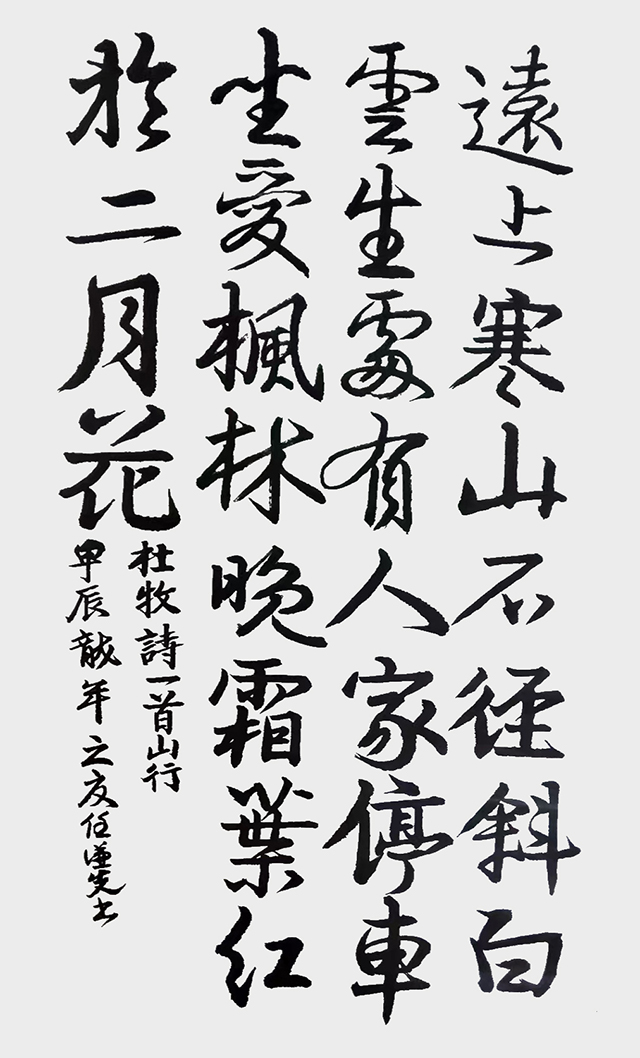 遠上寒山石徑斜白
雲生處有人家停車
坐愛楓林晚霜葉红
於二月花
杜牧詩一首山行
甲辰龍年之夏任謹先书